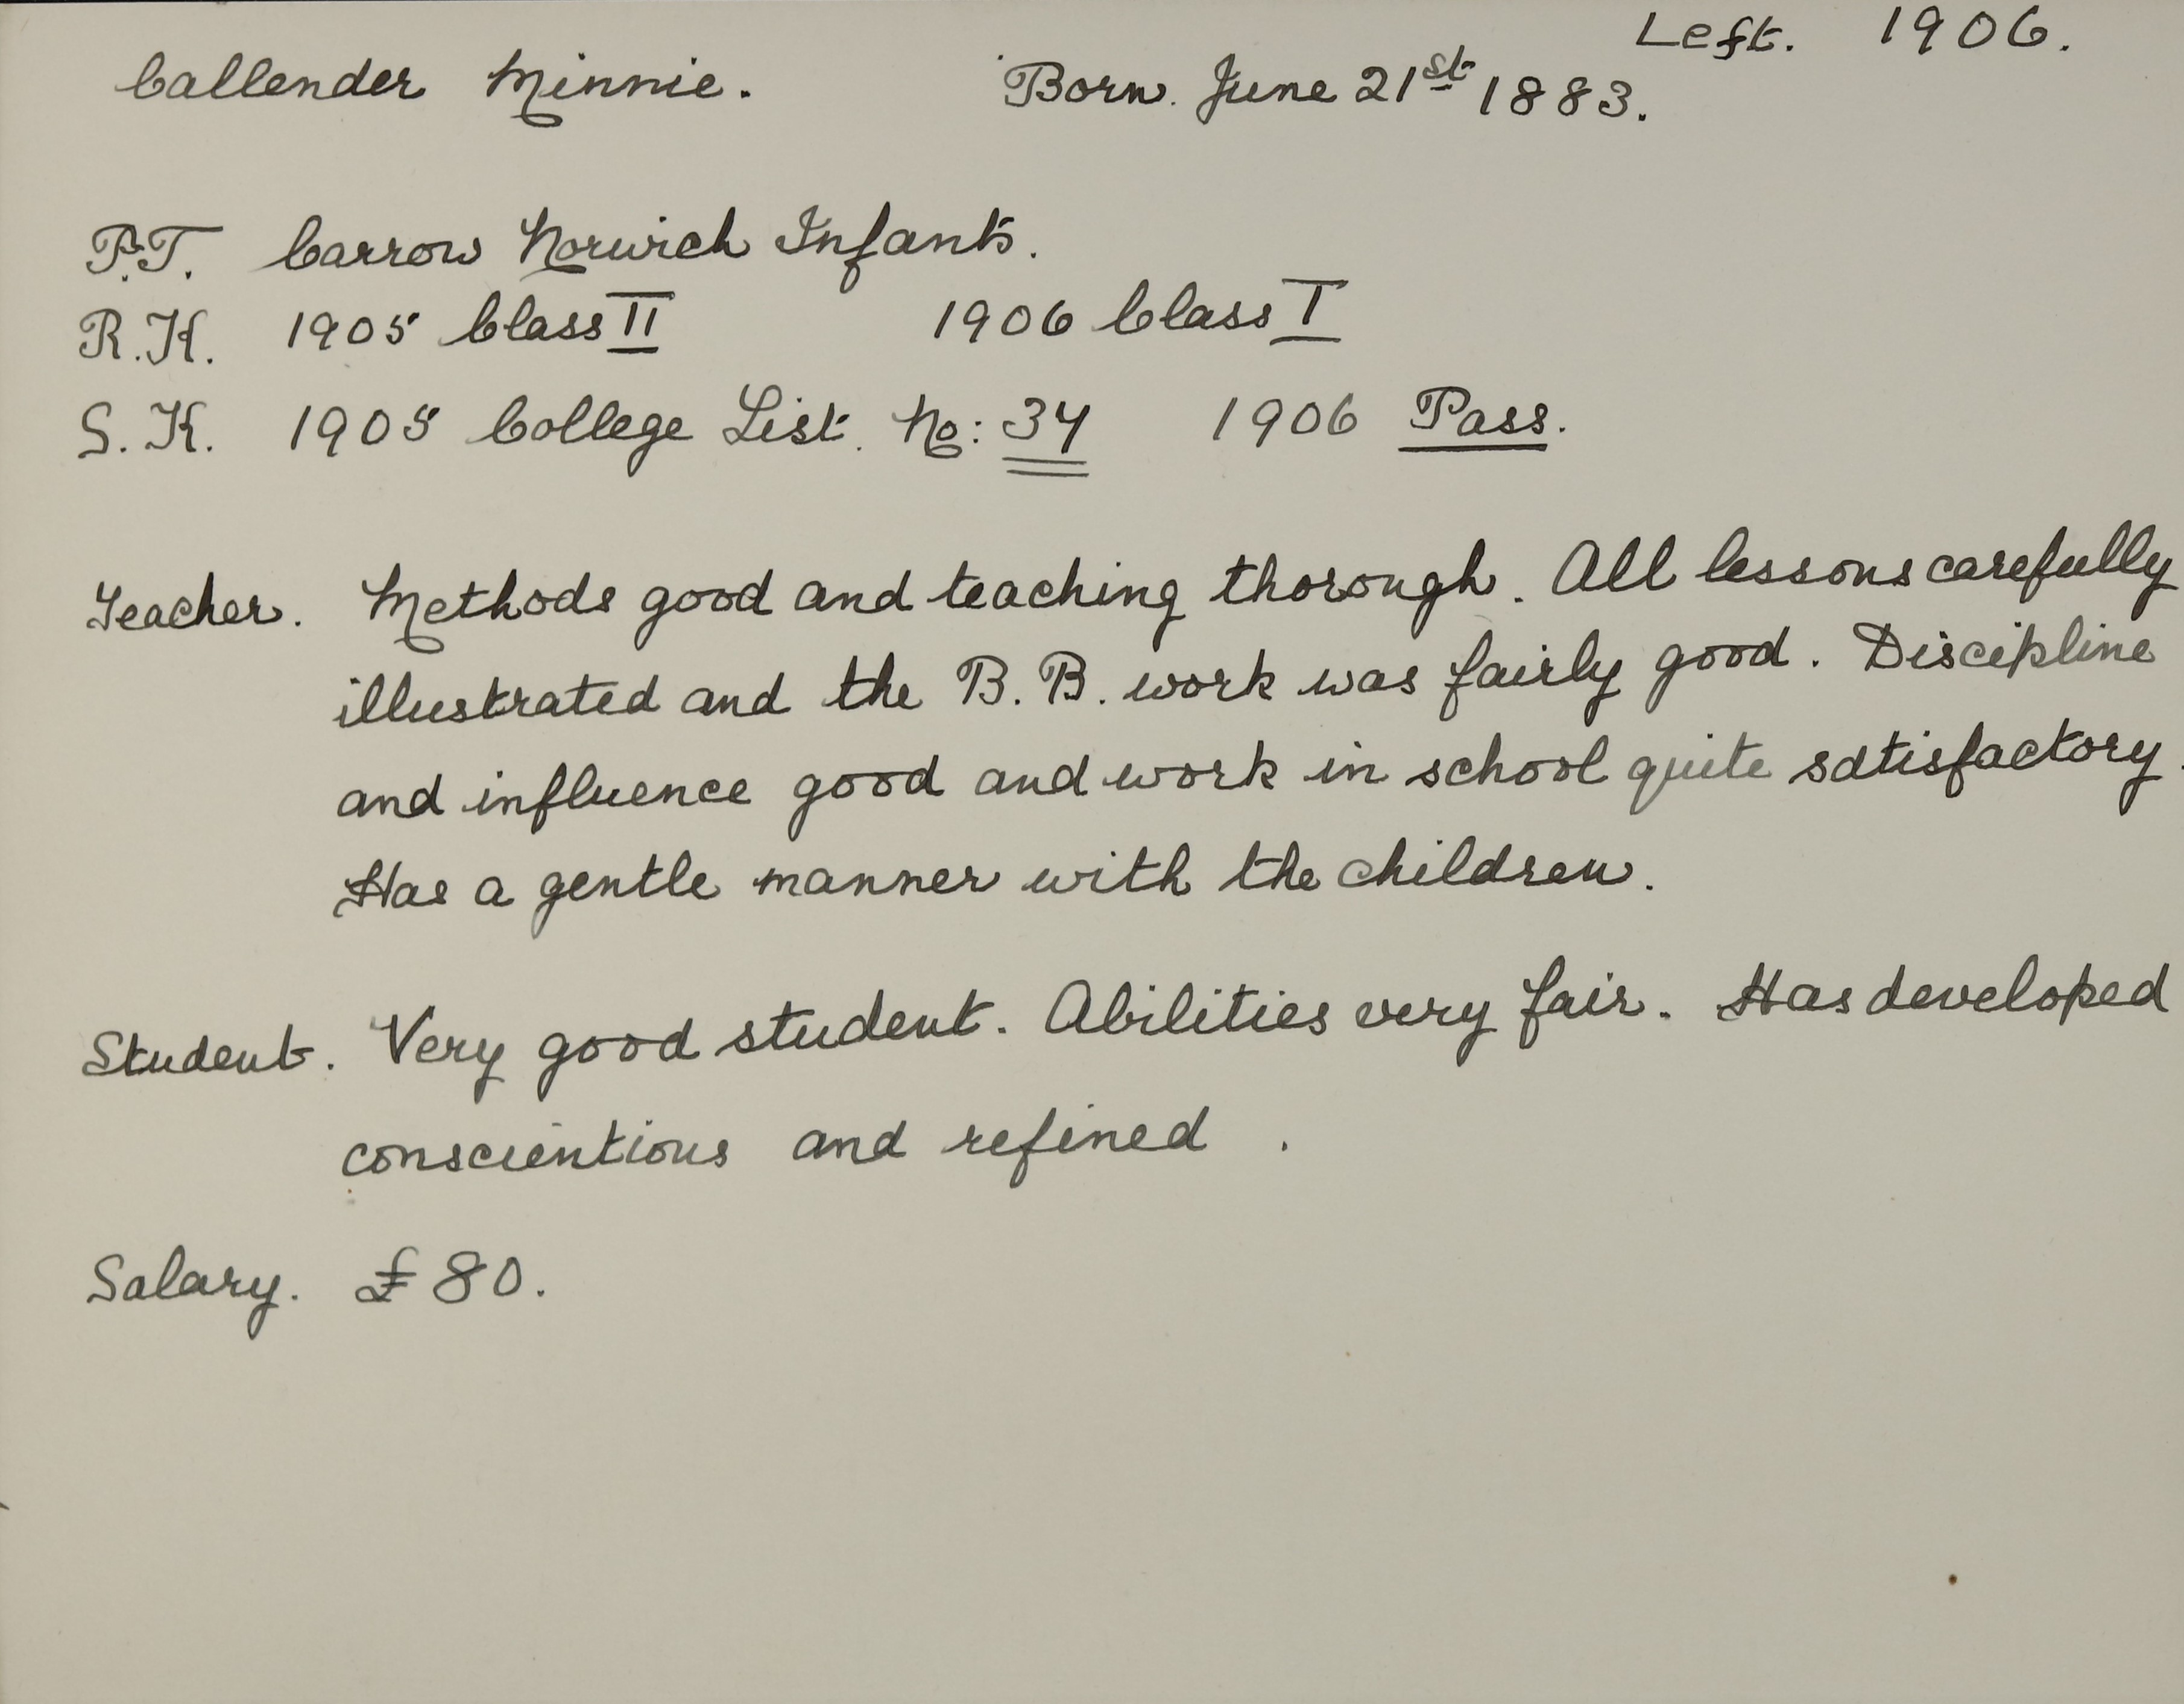 Left. 1906.
Callender Minnie. Born. June 21st 1883.
P.T. Carrow Norwich Infants.
R.K. 1905 Class II 1906 Class I
S.K. 1905 College List. No: 34 1906 Pass.
Teacher. Methods good and teaching thorough. All lessons carefully
illustrated and the B.B. work was fairly good. Discipline
and influence good and work in school quite satisfactory.
Has a gentle manner with the children.
Student. Very good student. Abilities very fair. Has developed
conscientious and refined .
Salary. £80.